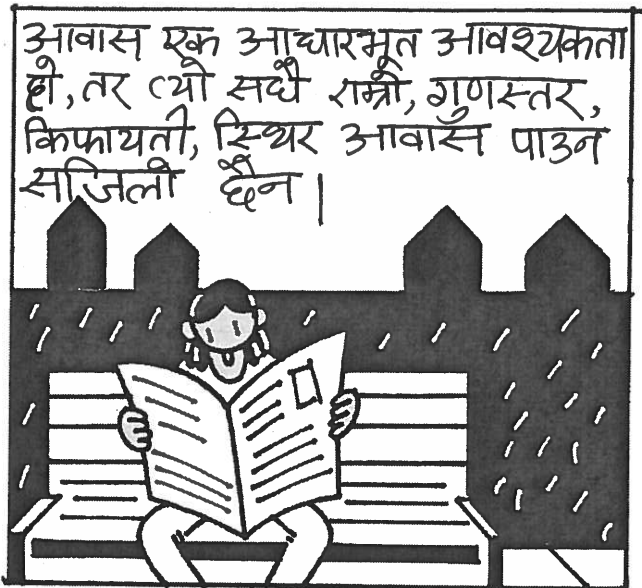 आवास एक आधारभूत आवश्यकता
हो, तर त्यो सधै राम्रो, गुणस्तर,
किफायती, स्थिर आवास पाउन
सजिलो छैन।